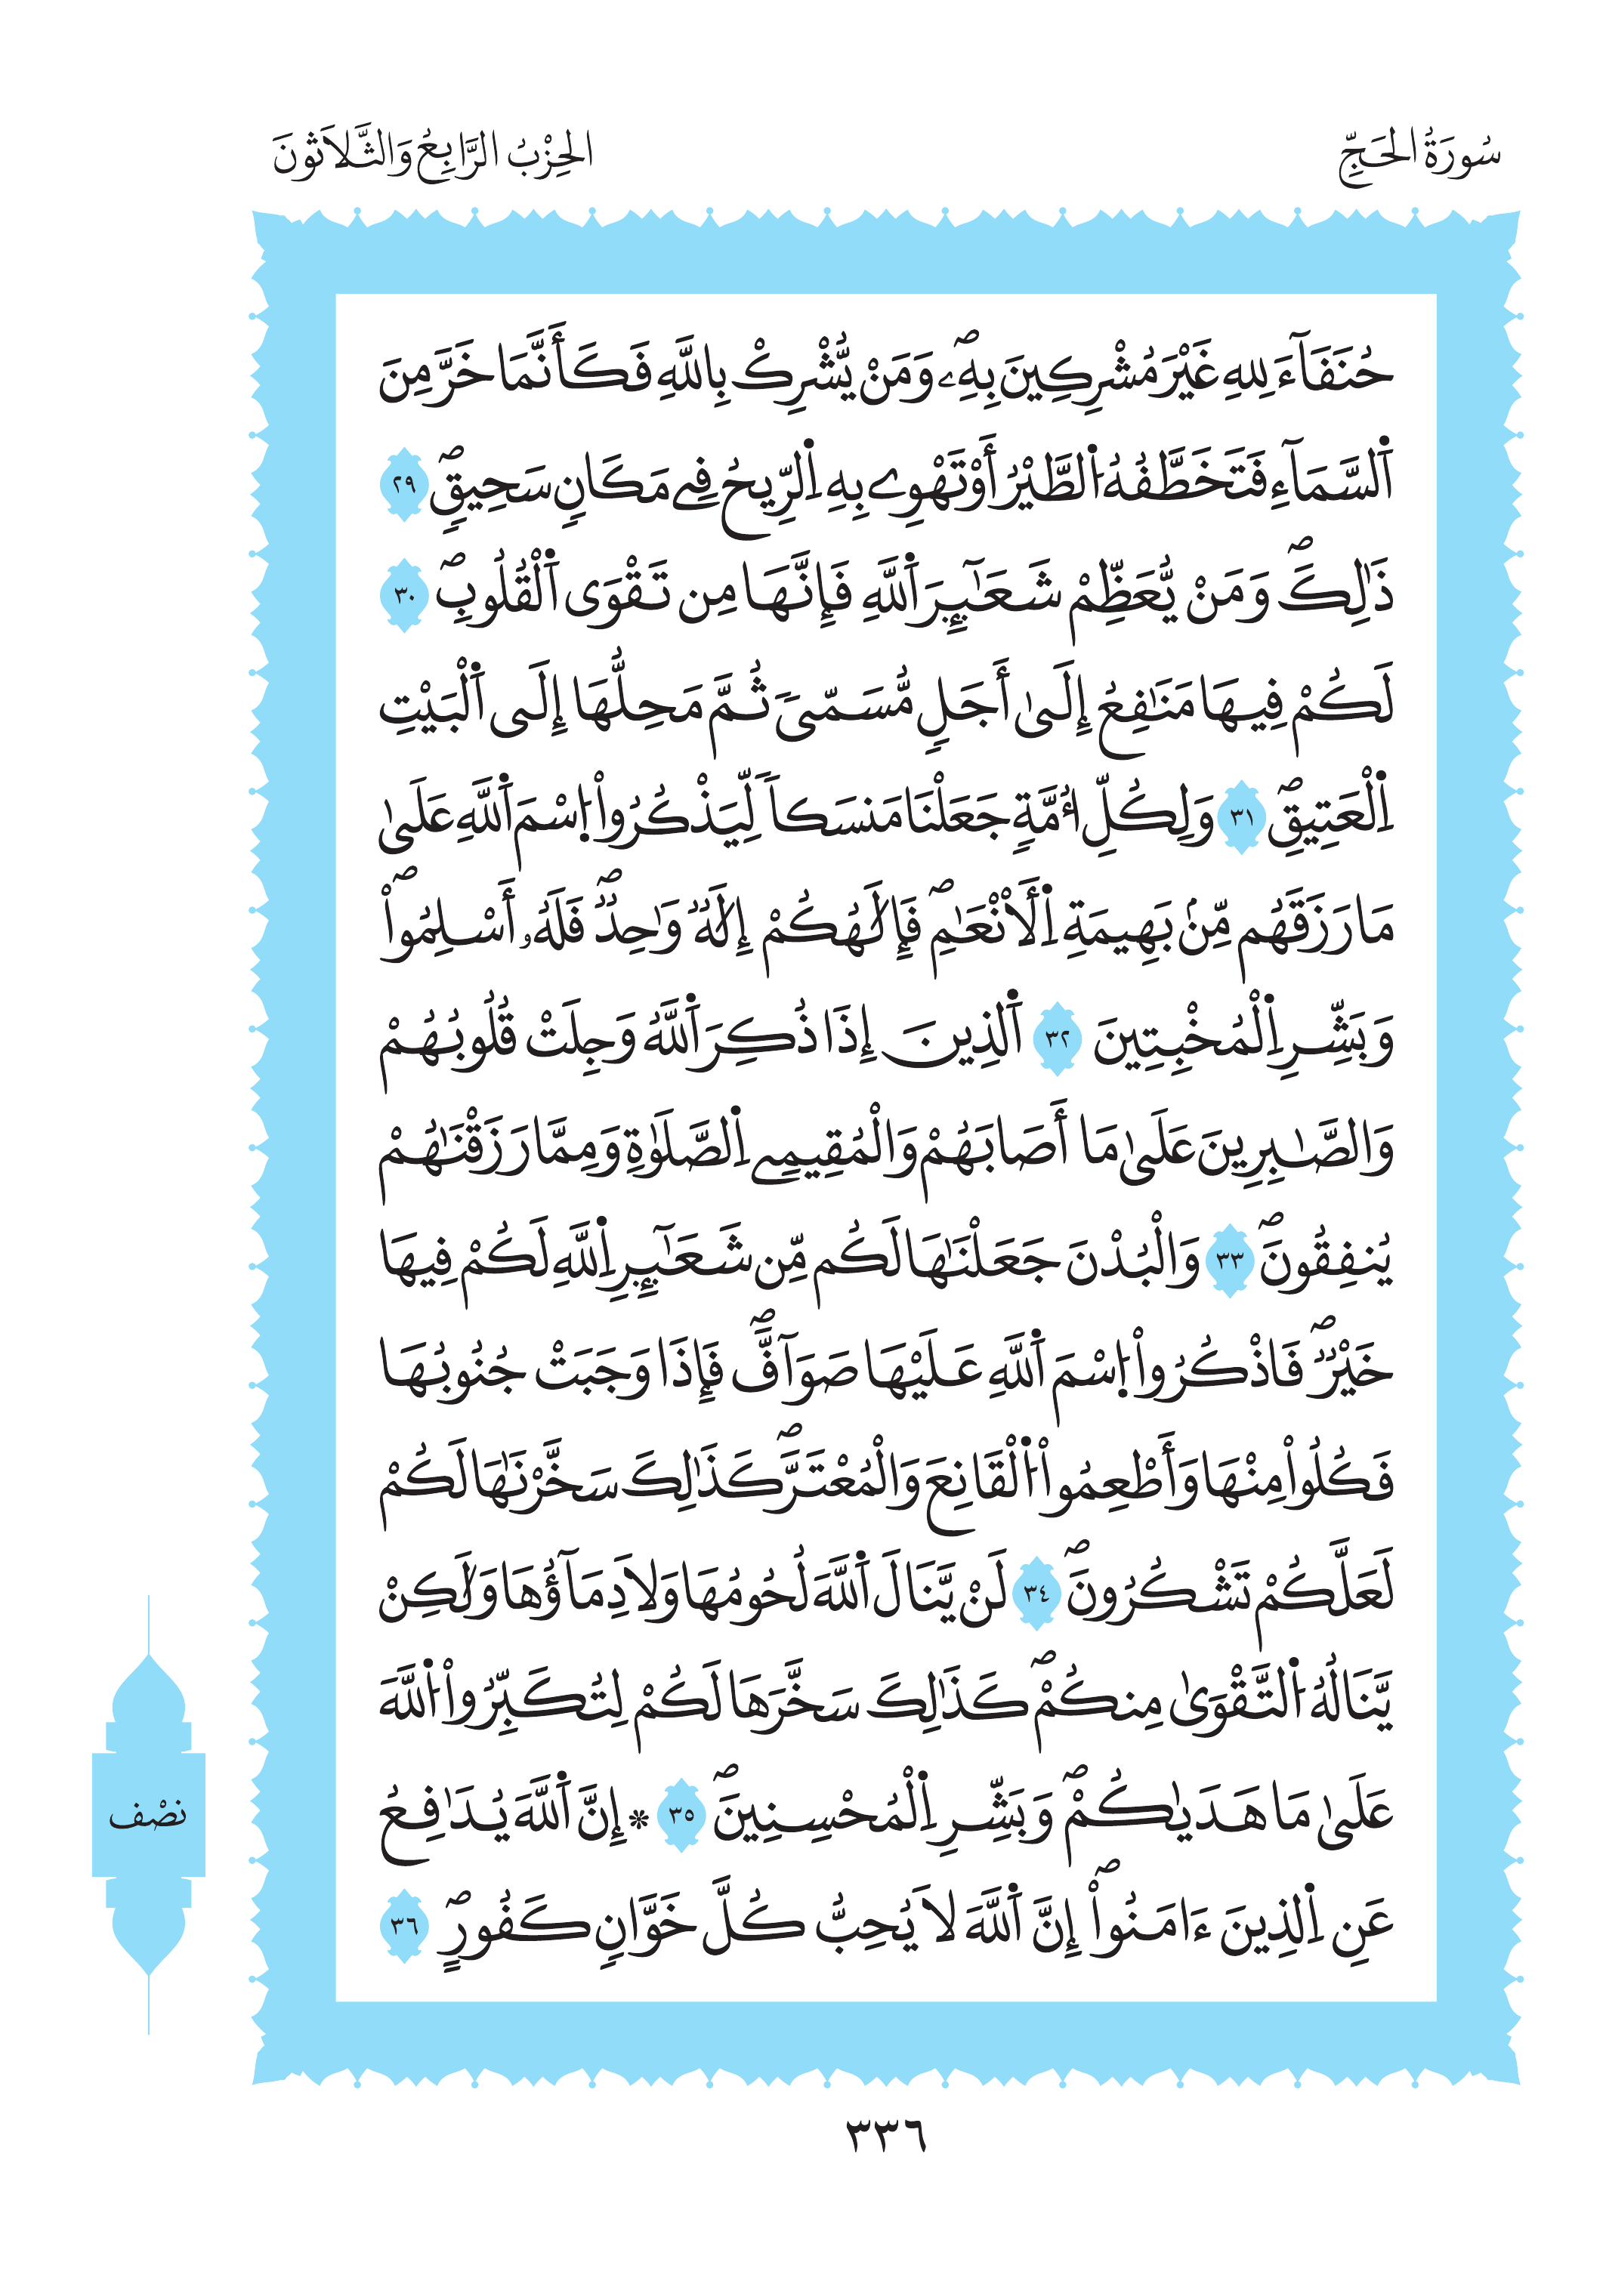 سُورَةُ الحَجِّ
الحِزْبُ الرَّابِعُ وَالثَّلَاثُونَ
حُنَفَآءَ لِلهِ غَيْرَ مُشْرِكِينَ بِهِۦۖ وَمَنْ يُّشْرِكْ بِاللَّهِ فَكَأَنَّمَا خَرَّ مِنَ
اَ۬لسَّمَآءِ فَتَخَطَّفُهُ اُ۬لطَّيْرُ أَوْ تَهْوِے بِهِ اِ۬لرِّيحُ فِے مَكَانٖ سَحِيقٖۖ ٢٩
ذَٰلِكَۖ وَمَنْ يُّعَظِّمْ شَعَٰٓئِرَ اَ۬للَّهِ فَإِنَّهَا مِن تَقْوَى اَ۬لْقُلُوبِۖ ٣٠
لَكُمْ فِيهَا مَنَٰفِعُ إِلَىٰٓ أَجَلٖ مُّسَمّىٗ ثُمَّ مَحِلُّهَا إِلَى اَ۬لْبَيْتِ
اِ۬لْعَتِيقِۖ ٣١ وَلِكُلِّ أُمَّةٖ جَعَلْنَا مَنسَكاٗ لِّيَذْكُرُواْ اُ۪سْمَ اَ۬للَّهِ عَلَىٰ
مَا رَزَقَهُم مِّنۢ بَهِيمَةِ اِ۬لَانْعَٰمِۖ فَإِلَٰهُكُمْ إِلَٰهٞ وَٰحِدٞۖ فَلَهُۥ أَسْلِمُواْۖ
وَبَشِّرِ اِ۬لْمُخْبِتِينَ ٣٢ اَ۬لذِينَ إِذَا ذُكِرَ اَ۬للَّهُ وَجِلَتْ قُلُوبُهُمْ
وَالصَّٰبِرِينَ عَلَىٰ مَا أَصَابَهُمْ وَالْمُقِيمِے اِ۬لصَّلَوٰةِ وَمِمَّا رَزَقْنَٰهُمْ
يُنفِقُونَۖ ٣٣ وَالْبُدْنَ جَعَلْنَٰهَا لَكُم مِّن شَعَٰٓئِرِ اِ۬للَّهِ لَكُمْ فِيهَا
خَيْرٞۖ فَاذْكُرُواْ اُ۪سْمَ اَ۬للَّهِ عَلَيْهَا صَوَآفَّۖ فَإِذَا وَجَبَتْ جُنُوبُهَا
فَكُلُواْ مِنْهَا وَأَطْعِمُواْ اُ۬لْقَانِعَ وَالْمُعْتَرَّۖ كَذَٰلِكَ سَخَّرْنَٰهَا لَكُمْ
لَعَلَّكُمْ تَشْكُرُونَۖ ٣٤ لَنْ يَّنَالَ اَ۬للَّهَ لُحُومُهَا وَلَا دِمَآؤُهَا وَلَٰكِنْ
يَّنَالُهُ اُ۬لتَّقْوَىٰ مِنكُمْۖ كَذَٰلِكَ سَخَّرَهَا لَكُمْ لِتُكَبِّرُواْ اُ۬للَّهَ
عَلَىٰ مَا هَدَيٰكُمْۖ وَبَشِّرِ اِ۬لْمُحْسِنِينَۖ ٣٥ * إِنَّ اَ۬للَّهَ يُدَٰفِعُ
عَنِ اِ۬لذِينَ ءَامَنُواْۖ إِنَّ اَ۬للَّهَ لَا يُحِبُّ كُلَّ خَوَّانٖ كَفُورٍۖ ٣٦
نصْف
٣٣٦